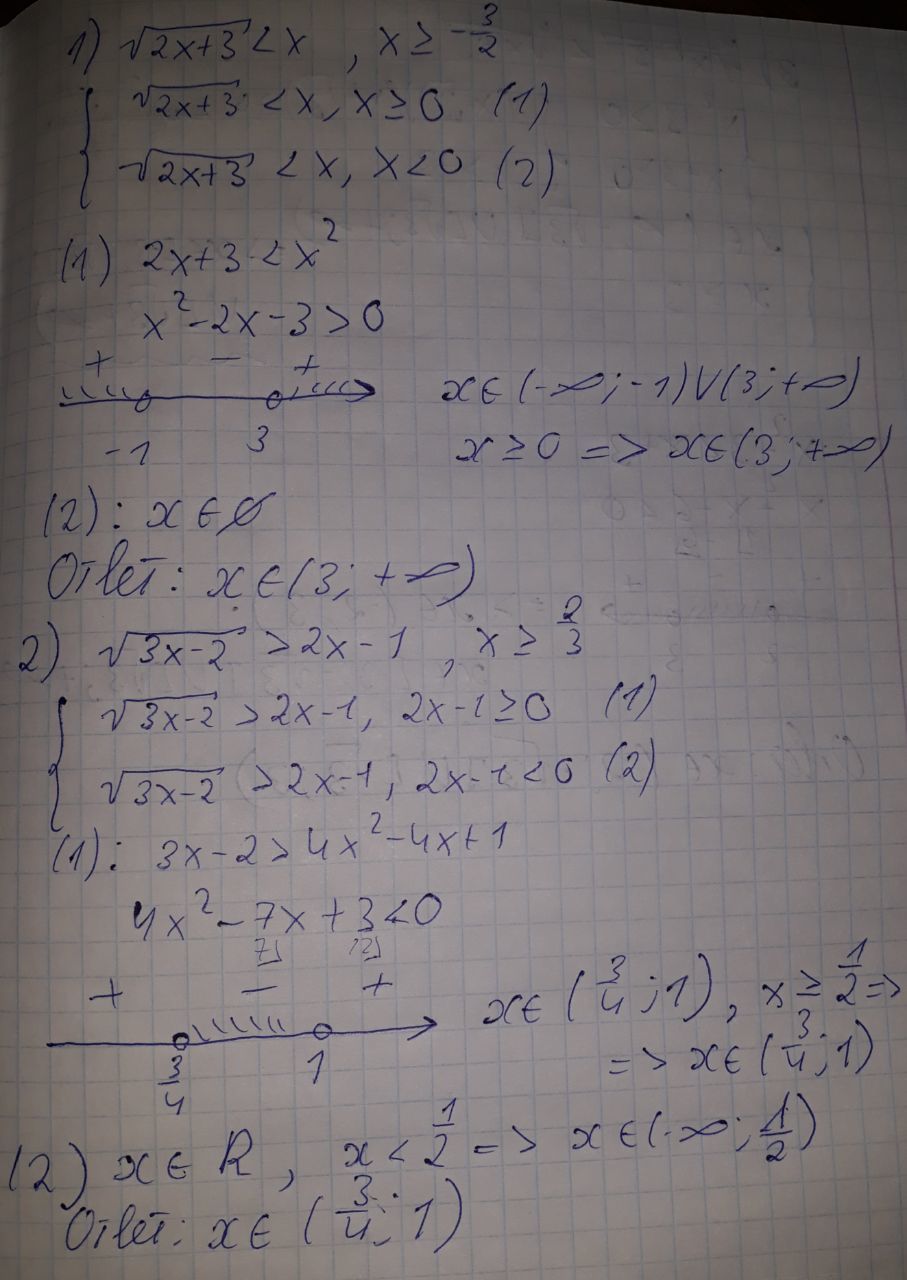 1) √2x+3 < x , x ≥ -3/2
{ √2x+3 < x, x ≥ 0 (1)
√2x+3 < x, x < 0 (2)
(1) 2x+3 < x²
x² - 2x - 3 > 0
+ − +
-1 3
x ∈ (-∞; -1) ∪ (3; +∞)
x ≥ 0 => x ∈ (3; +∞)
(2): x ∈ ∅
Ответ: x ∈ (3; +∞)
2) √3x-2 > 2x-1 , x ≥ 2/3
{ √3x-2 > 2x-1, 2x-1 ≥ 0 (1)
√3x-2 > 2x-1, 2x-1 < 0 (2)
(1): 3x-2 > 4x² - 4x + 1
4x² - 7x + 3 < 0
+ − +
3/4 1
x ∈ (3/4; 1), x ≥ 1/2 =>
=> x ∈ (3/4; 1)
(2) x ∈ R, x < 1/2 => x ∈ (-∞; 1/2)
Ответ: x ∈ (3/4; 1)